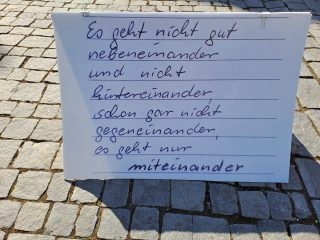 Es geht nicht gut
nebeneinander
und nicht
hintereinander
schon gar nicht
gegeneinander,
es geht nur
miteinander